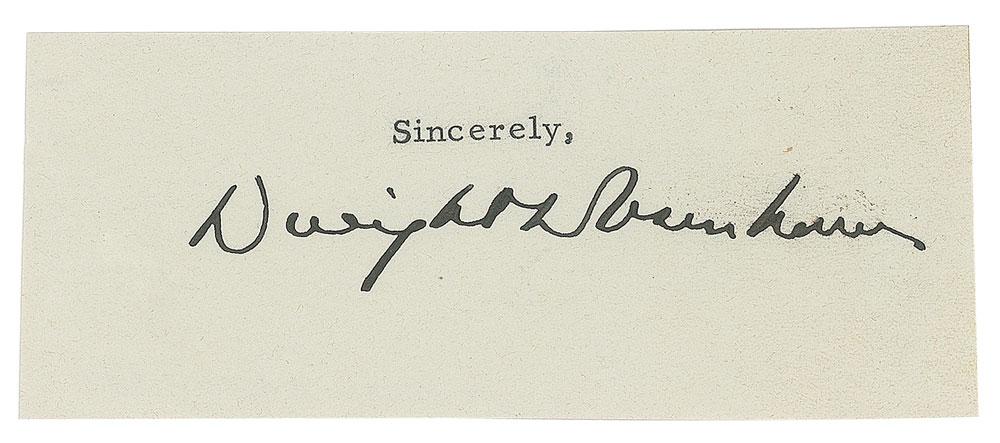 Sincerely,
Dwight D Eisenhower